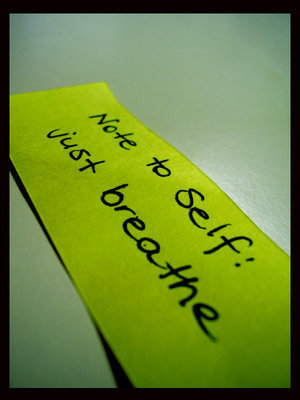 Note to Self:
just breathe